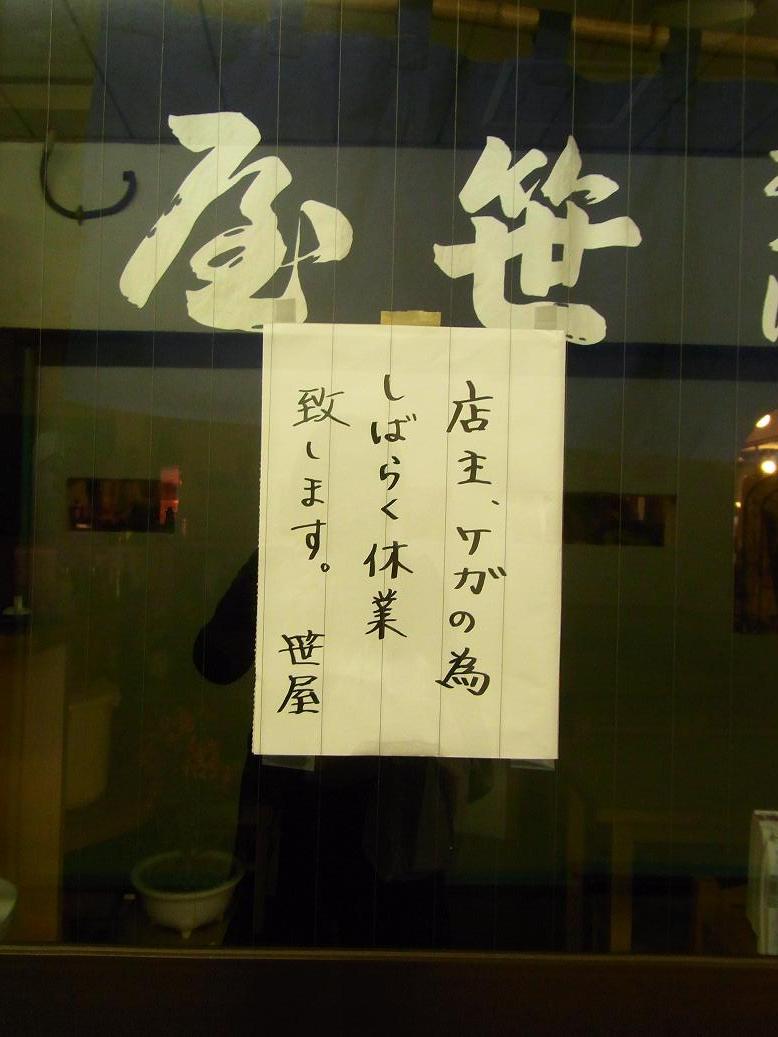 笹屋
店主、ケガの為
しばらく休業
致します。 笹屋